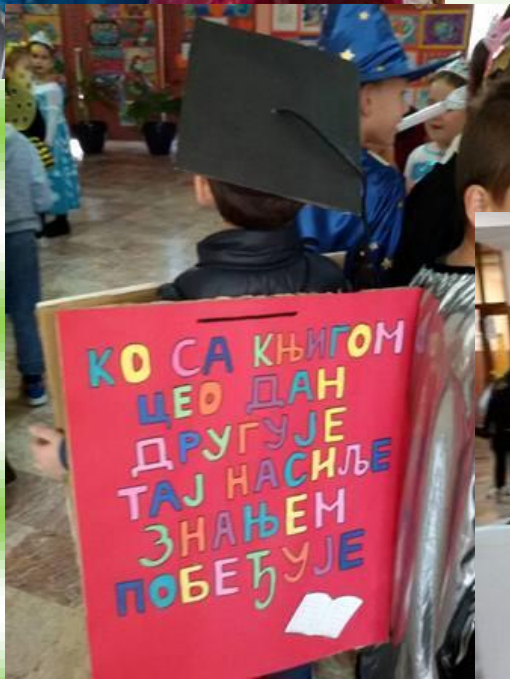 КО СА КЊИГОМ
ЦЕО ДАН
ДРУГУЈЕ
ТАЈ НАСИЉЕ
ЗНАЊЕМ
ПОБЕЂУЈЕ